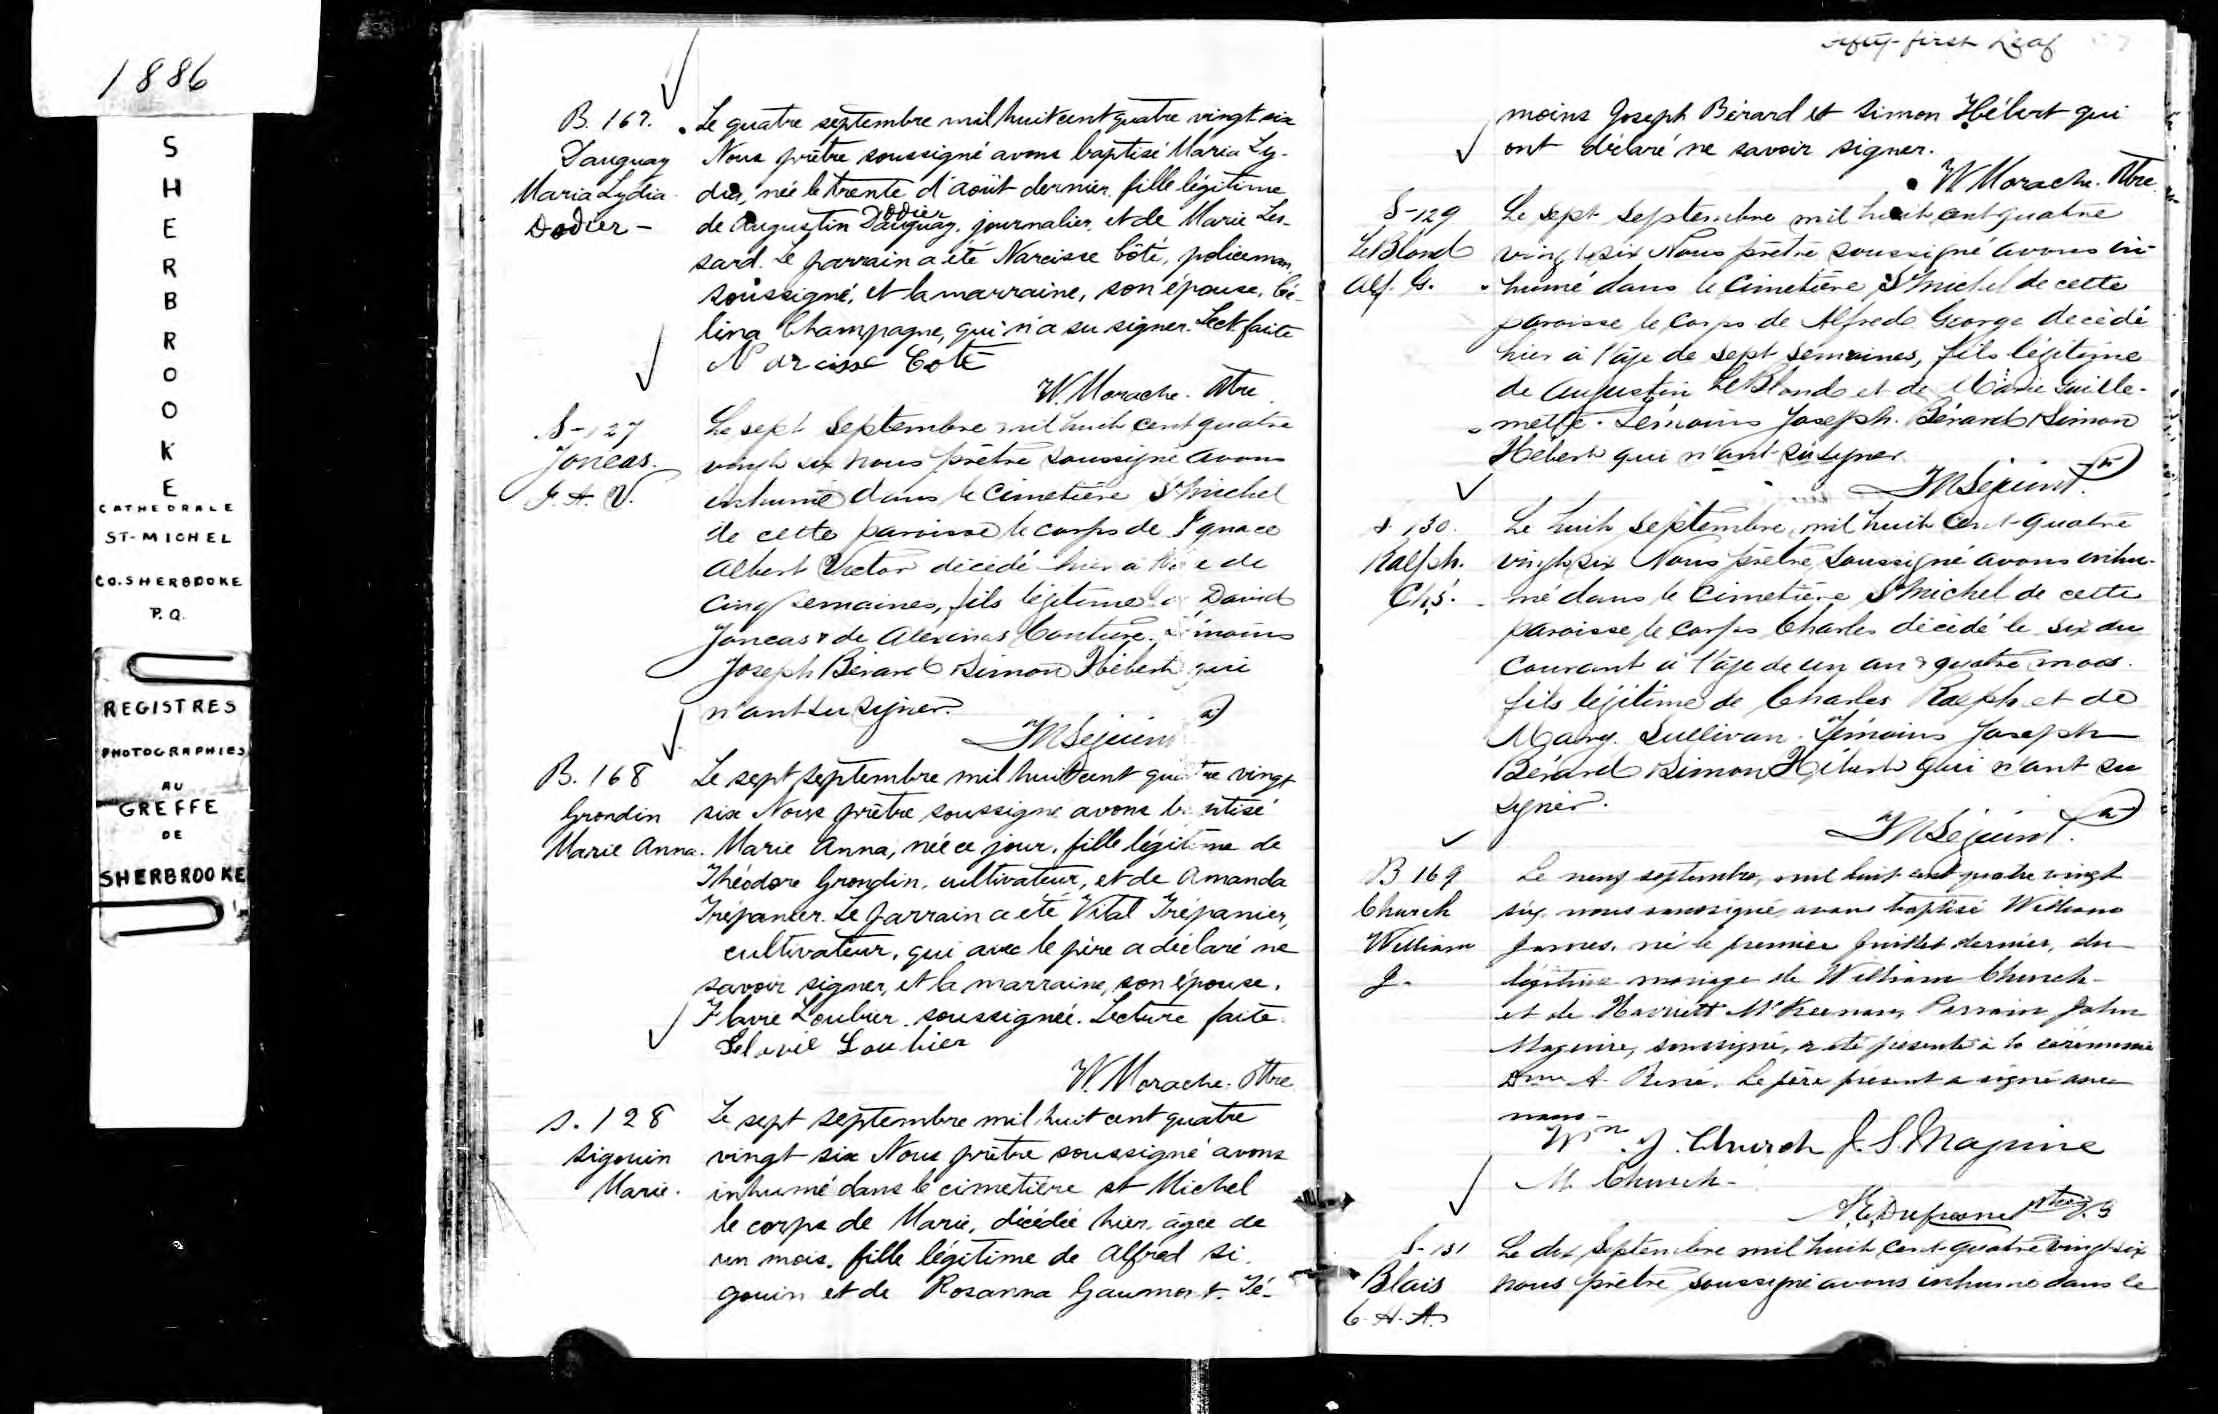 1886
SHERBROOKE
CATHEDRALE
ST-MICHEL
CO. SHERBROOKE
P.Q.
REGISTRES
PHOTOGRAPHIES
AU
GREFFE
DE
SHERBROOKE
B. 167.
Dauguay
Maria Lydia
Dodier -
Le quatre septembre mil huit cent quatre vingt six
Nous prêtre soussigné avons baptisé Maria Ly-
dia, née le trente d'août dernier, fille légitime
Dodier
de Augustin Dauguay, journalier, et de Marie Les-
sard. Le parrain a été Narcisse Côté, policeman,
soussigné, et la marraine, son épouse, Cé-
lina Champagne, qui n'a su signer. Lect. faite
Narcisse Coté
W. Morache. Ptre.
S-127
Joncas.
J. A. V.
Le sept Septembre mil huit cent quatre
vingt six nous prêtre soussigné avons
inhumé dans le cimetière St Michel
de cette paroisse le corps de Ignace
Albert Victor décédé hier à de
cinq semaines, fils légitime de David
Joncas & de Alexina Couture. Témoins
Joseph Bérard & Simon Hébert qui
n'ont su signer.
B. 168
Grondin
Marie Anna.
Le sept septembre mil huit cent quatre vingt
six Nous prêtre soussigné avons baptisé
Marie Anna, née ce jour, fille légitime de
Théodore Grondin, cultivateur, et de Amanda
Trépanier. Le parrain a été Vital Trépanier,
cultivateur, qui avec le père a déclaré ne
savoir signer, et la marraine, son épouse,
Flavie Loubier soussignée. Lecture faite.
Loubier
W. Morache. Ptre
S. 128
Sigouin
Marie.
Le sept septembre mil huit cent quatre
vingt six Nous prêtre soussigné avons
inhumé dans le cimetière st Michel
le corps de Marie, décédée hier, âgée de
un mois, fille légitime de Alfred Si-
gouin et de Rosanna Gaumont. Té-
Fifty-first Leaf
moins Joseph Bérard et Simon Hébert qui
ont déclaré ne savoir signer.
W Morache. Ptre.
S-129
LeBlond
Alf. G.
Le sept Septembre mil huit cent quatre
vingt six Nous prêtre soussigné avons in-
humé dans le Cimetière St Michel de cette
paroisse le corps de Alfred George décédé
hier à l'âge de sept semaines, fils légitime
de Augustin LeBlond et de Marie Guille-
mette. Témoins Joseph Bérard & Simon
Hébert qui n'ont su signer.
S. 130.
Ralph.
Chs.
Le huit Septembre mil huit cent quatre
vingt six Nous prêtre soussigné avons inhu-
mé dans le Cimetière St Michel de cette
paroisse le corps Charles décédé le six du
courant à l'âge de un an & quatre mois.
fils légitime de Charles Ralph et de
Mary Sullivan. Témoins Joseph
Bérard & Simon Hébert qui n'ont su
signer.
B 169
Church
William
J.
Le neuf septembre, mil huit cent quatre vingt
six, nous soussigné, avons baptisé William
James, né le premier Juillet dernier, du
légitime mariage de William Church
et de Harriett McKeenan, Parrain John
Maguire, soussigné, a été présente à la cérémonie
Dme A. René. Le père présent a signé avec
nous -
Wm J. Church J. S. Maguire
M. Church -
S-131
Blais
C. H. A.
Le dix Septembre mil huit cent quatre vingt six
nous prêtre soussigné avons inhumé dans le